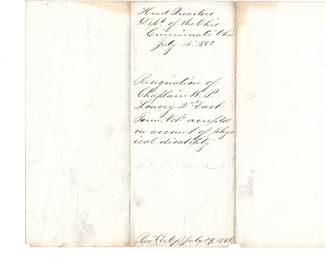 Head Quarters
Dept of the Ohio
Cincinnati Ohio
July 15. 1863
Resignation of
Chaplain W. P
2nd East
Tenn. Vols accepted
on account of phys
ical disability
July 19. 1863